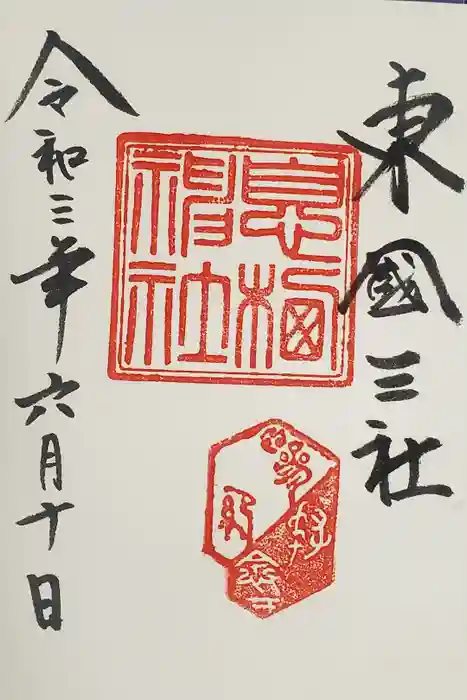 東國三社
息栖
神社
令和三年六月十日